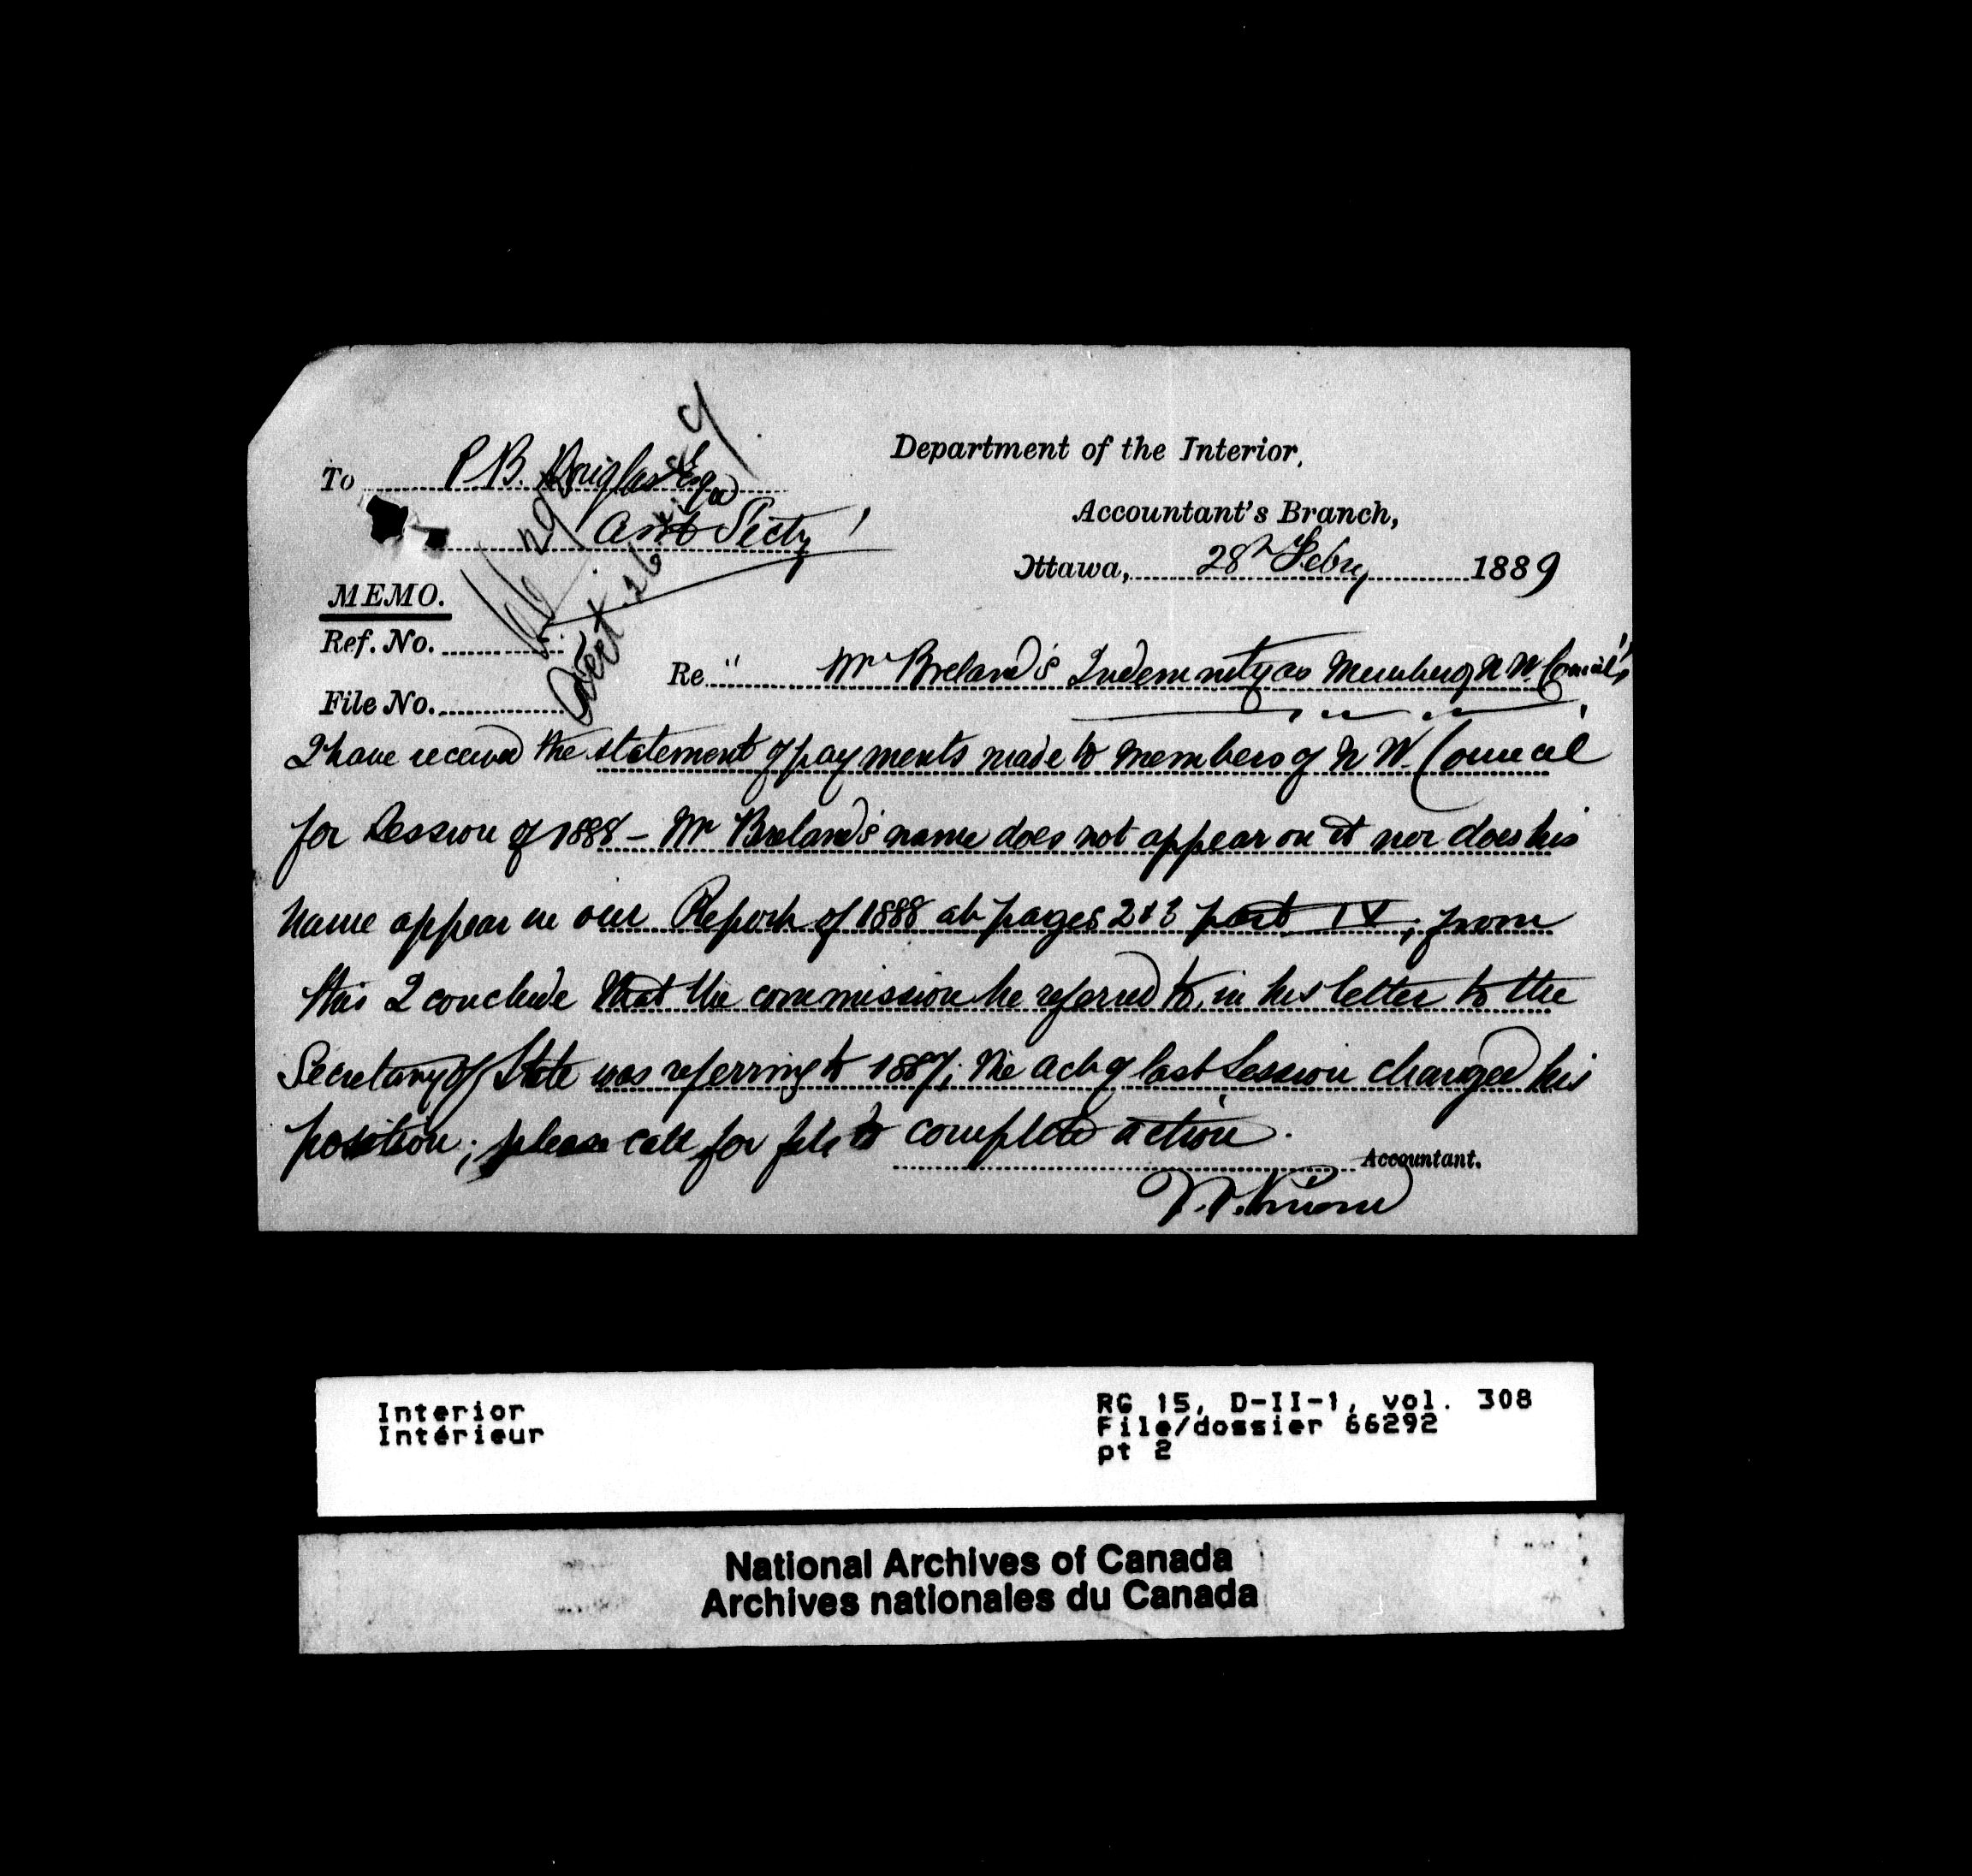 Department of the Interior,
To P. B. Douglas Esq
Asst Secty
Accountant's Branch,
Ottawa, 28th Febry 1889
MEMO.
Ref. No.
File No.
Re " Mr Breland's Indemnity as Member of N W. Council "
I have received the statement of payments made to members of N W. Council
for Session of 1888 - Mr Breland's name does not appear on it nor does his
name appear in our Report of 1888 at pages 2 & 3 part IV; from
this I conclude that the commission he referred to in his letter to the
Secretary of State was referring to 1887; the act of last Session changed his
position; please call for file to complete action.
Accountant.
Interior
Intérieur
RG 15, D-II-1, vol. 308
File/dossier 66292
pt 2
National Archives of Canada
Archives nationales du Canada